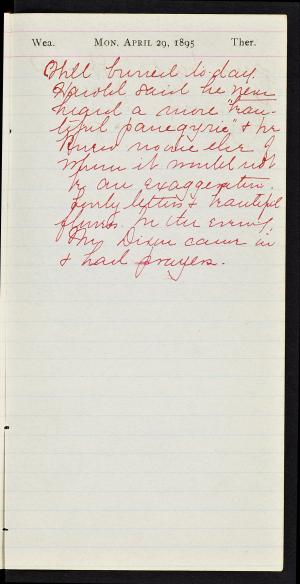 Wea. MON. APRIL 29, 1895 Ther.
Will buried to-day.
Harold said he never
heard a more "beau-
tiful panegyric" & he
knew no one else of
whom it would not
be an exaggeration.
Lovely letters & beautiful
flowers. In the evening
Dixon came in
& had prayers.